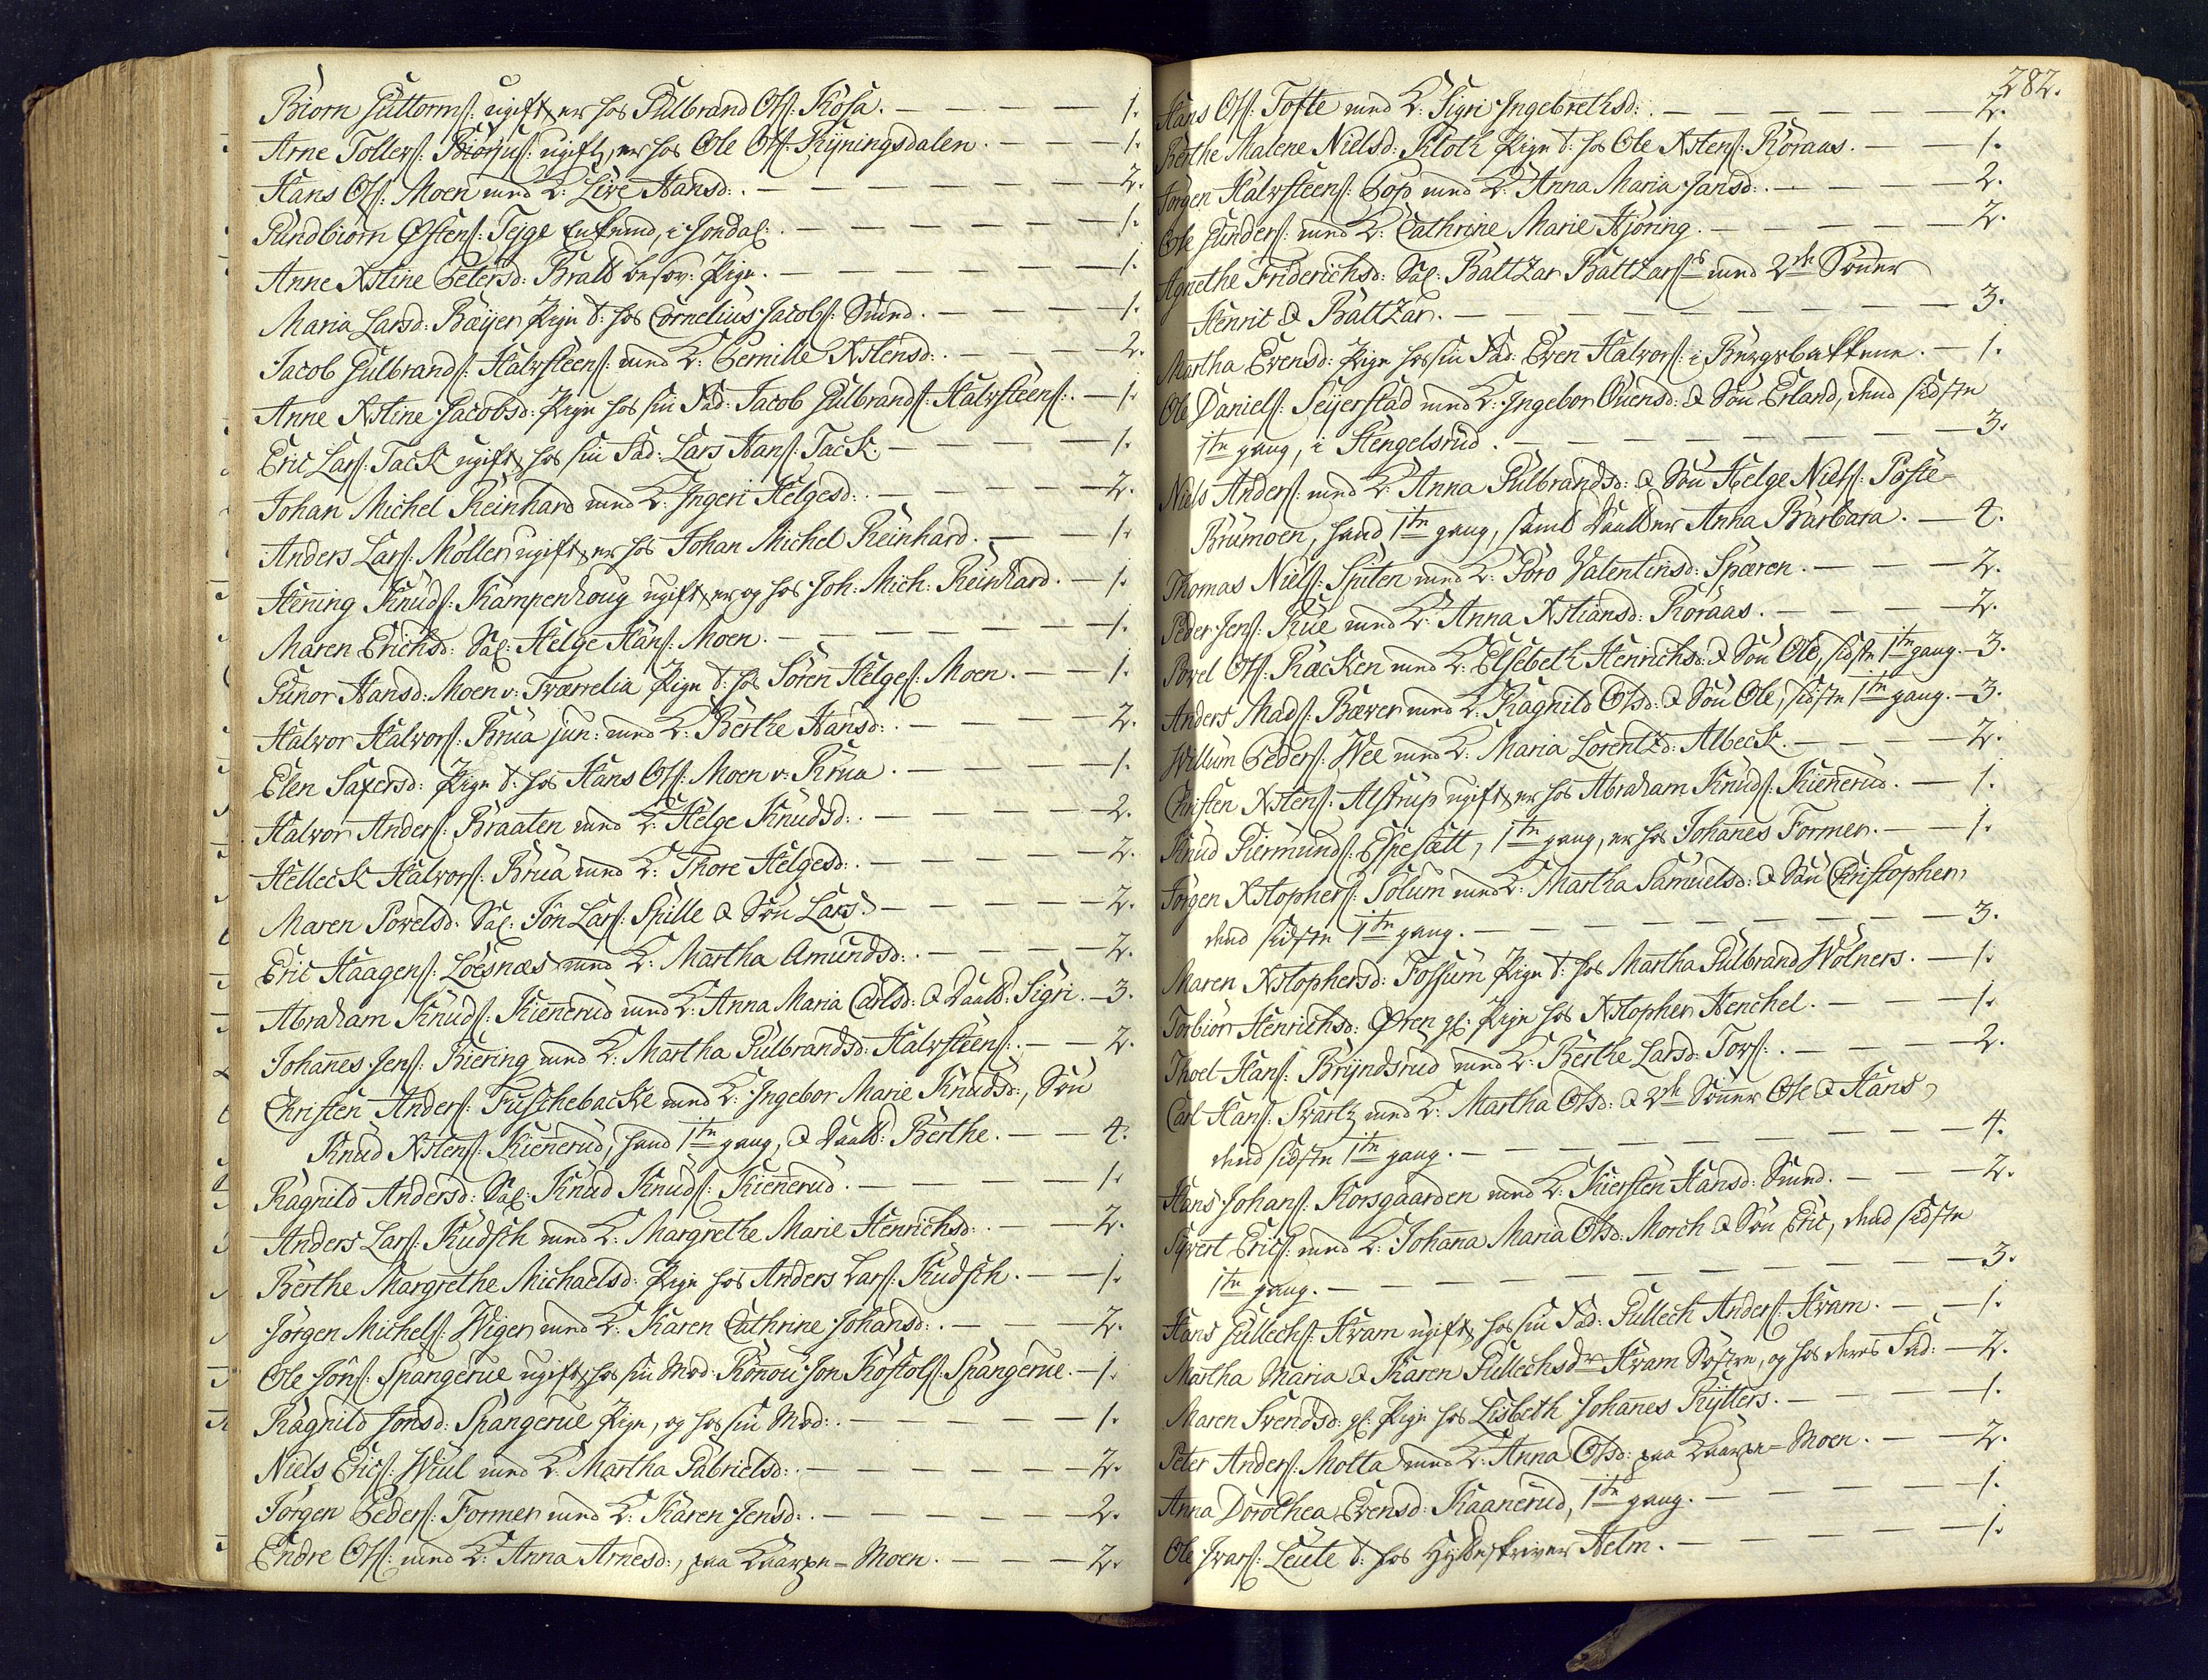 Biorn Guttorms: ugift, er hos Gulbrand Ols: Kosa. 1.
Arne Tollefs: ugift, er hos Ole Ols: Ryningsdalen. 1.
Hans Ols: Moen med K: Live Hansd: 2.
Gundbiørn Østens: Teige Enkemand, i Jondal: 1.
Anne Xstine Petersd: Brald besov: Pige. 1.
Maria Larsd: Bæyer Pige t: hos Cornelius Jacobs: Smed. 1.
Jacob Gulbrands: Halvsteens: med K: Pernille Xstensd: 2.
Anne Xstine Jacobsd: Pige hos sin Fad: Jacob Gulbrands: Halvsteens: 1.
Eric Lars: Tack ugift, hos sin Fad: Lars Hans: Tack. 1.
Johan Michel Reinhard med K: Ingeri Helgesd: 2.
Anders Lars: Møller ugift, er hos Johan Michel Reinhard. 1.
Henning Knuds: Kampenhoug ugift, er og hos Joh: Mich: Reinhard. 1.
Maren Erichsd: Sal: Helge Hans: Moen. 1.
Gunor Hansd: Moen v: Tværrelia Pige t: hos Søren Helges: Moen. 1.
Halvor Halvors: Brua jun: med K: Berthe Hansd: 2.
Elen Saxersd: Pige t: hos Hans Ols: Moen v: Brua. 1.
Halvor Anders: Braaten med K: Helge Knudsd: 2.
Helleck Halvors: Brua med K: Thore Helgesd: 2.
Maren Povelsd: Sal: Jon Lars: Spille & Søn Lars. 2.
Eric Haagens: Løesnæs med K: Martha Amundsd: 2.
Abraham Knuds: Kiennerud med K: Anna Maria Carlsd: & Daatt: Sigri. 3.
Johannes Jens: Biering med K: Martha Gulbrandsd: Halvsteens: 2.
Christen Anders: Fuschebacke med K: Ingebor Marie Knudsd:, Søn
Knud Xstens: Kiennerud, hand 1te gang, & Daatt: Berthe. 4.
Ragnild Andersd: Sal: Knud Knuds: Kiennerud. 1.
Anders Lars: Kudsch med K: Margrethe Marie Henrichsd: 2.
Berthe Margrethe Michaelsd: Pige hos Anders Lars: Kudsch. 1.
Jørgen Michels: Wiger med K: Karen Cathrine Johansd: 2.
Ole Jons: Spangerue ugift, hos sin Mod: Ronnou Jon Kostols: Spangerue. 1.
Ragnild Jonsd: Spangerue Pige, og hos sin Mod: 1.
Niels Erics: Wiul med K: Martha Gabrielsd: 2.
Jørgen Peders: Former med K: Karen Jensd: 2.
Endre Ols: med K: Anna Arnesd:, paa Moen. 2.
282.
Hans Ols: Tofte med K: Sigri Ingebrethsd: 2.
Berthe Malene Nielsd: Kloth Pige t: hos Ole Xstens: Røraas. 1.
Jørgen Halvsteens: Gop med K: Anna Maria Jansd: 2.
Ole Gunders: med K: Cathrine Marie Hjøring. 2.
Agnethe Friderichsd: Sal: Baltzar Baltzars: med 2de Sønner
Henric & Baltzar. 3.
Martha Evensd: Pige hos sin Fad: Even Halvors: i Bergsbakkene. 1.
Ole Daniels: Seyerstad med K: Ingebor Ouensd: & Søn Erland, dend sidste
1te gang, i Hengelsrud. 3.
Niels Anders: med K: Anna Gulbrandsd: & Søn Helge Niels: Poste-
Brumoen, hand 1te gang, samt Daatter Anna Barbara. 4.
Thomas Niels: Spiten med K: Goro Valentinsd: Spæren. 2.
Peder Jens: Rue med K: Anna Xstiansd: Røraas. 2.
Povel Ols: Racken med K: Elsebeth Henrichsd: & Søn Ole, sidste 1te gang. 3.
Anders Mads: Bæver med K: Ragnild Olsd: & Søn Ole, sidste 1te gang. 3.
Willum Peders: Wee med K: Maria Lorentzd: Albeck. 2.
Christen Xstens: Alstrup ugift, er hos Abraham Knuds: Kiennerud. 1.
Knud Giermunds: Espesætt, 1te gang, er hos Johannes Former. 1.
Jørgen Xstophers: Solum med K: Martha Samuelsd: & Søn Christopher,
dend sidste 1te gang. 3.
Maren Xstophersd: Fossum Pige t: hos Martha Gulbrand Wølners. 1.
Torbiør Henrichsd: Øren gl: Pige hos Xstopher Henchel. 1.
Thoel Hans: Bryndsrud med K: Berthe Larsd: Tors: 2.
Carl Hans: Svartz med K: Martha Olsd: & 2de Sønner Ole & Hans,
dend sidste 1te gang. 4.
Hans Johans: Korsgaarden med K: Kiersten Hansd: Smed. 2.
Sywert Erics: med K: Johanna Maria Olsd: Morch & Søn Eric, dend sidste
1te gang. 3.
Hans Gullechs: Hvam ugift, hos sin Fad: Gullech Anders: Hvam. 1.
Martha Maria & Karen Gullechsdr Hvam Søstre, og hos deres Fad: 2.
Maren Svendsd: gl: Pige hos Lisbeth Johannes Rytters. 1.
Peter Anders: Motta med K: Anna Olsd: paa Moen. 2.
Anna Dorothea Evensd: Kaanerud, 1te gang. 1.
Ole Ivars: Leute t: hos Hytteskriver Helm. 1.